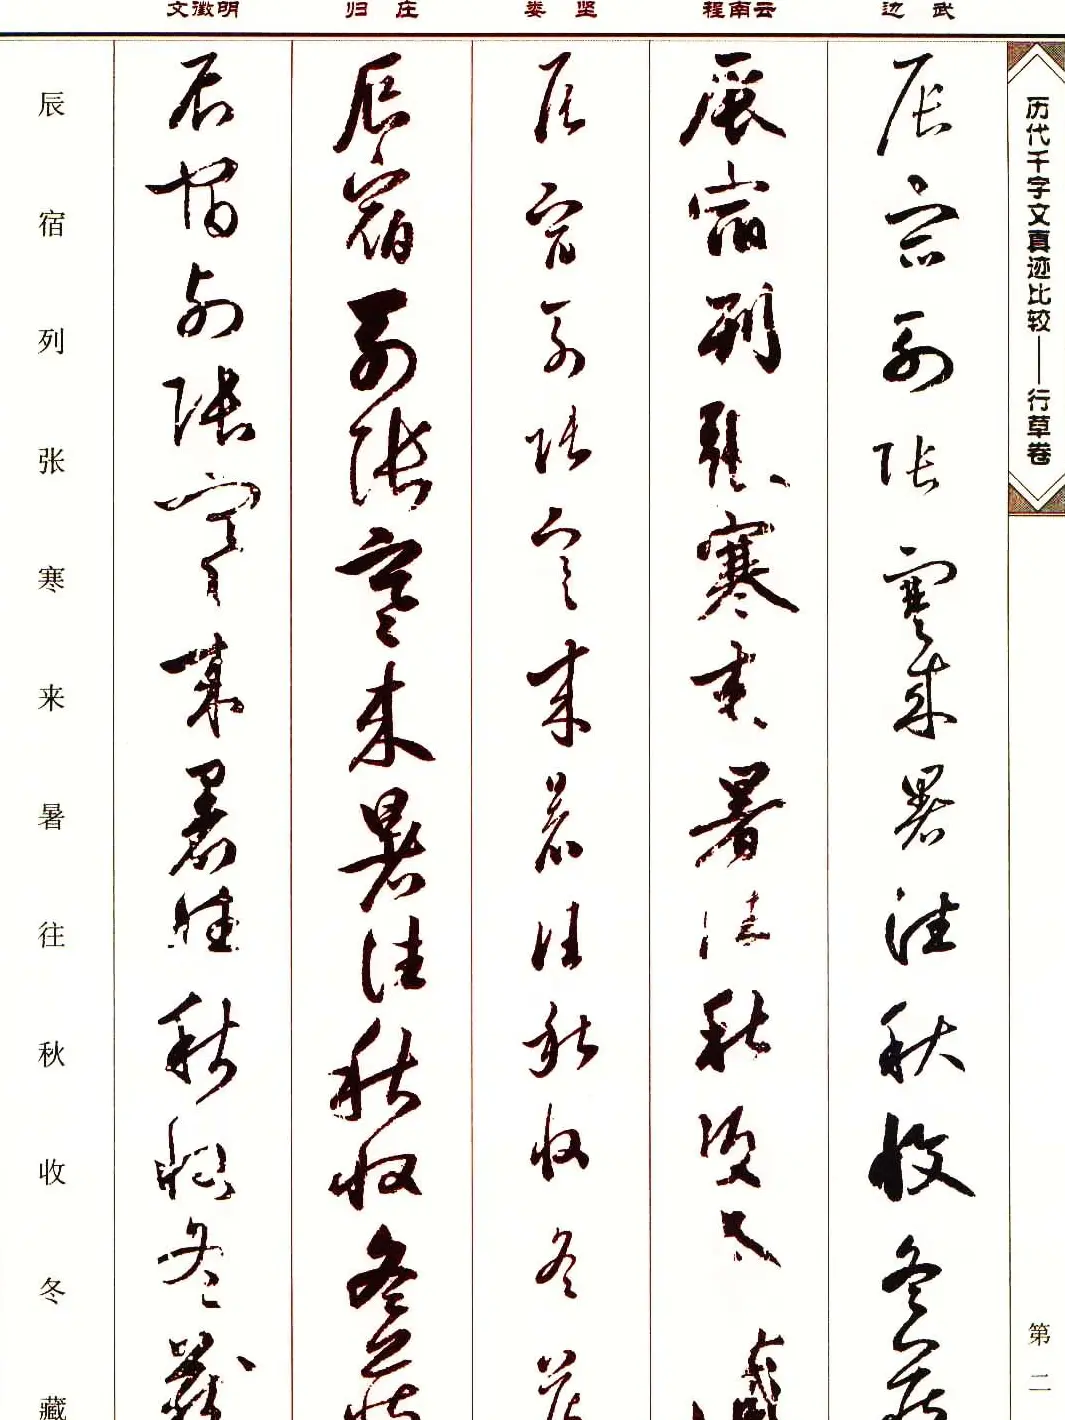 历代千字文真迹比较——行草卷
第二
边武
辰宿列張寒來暑往秋收冬藏
程南云
辰宿列張寒來暑往秋收冬藏
娄坚
辰宿列張寒來暑往秋收冬藏
归庄
辰宿列張寒來暑往秋收冬藏
文徵明
辰宿列張寒來暑往秋收冬藏
辰宿列张寒来暑往秋收冬藏